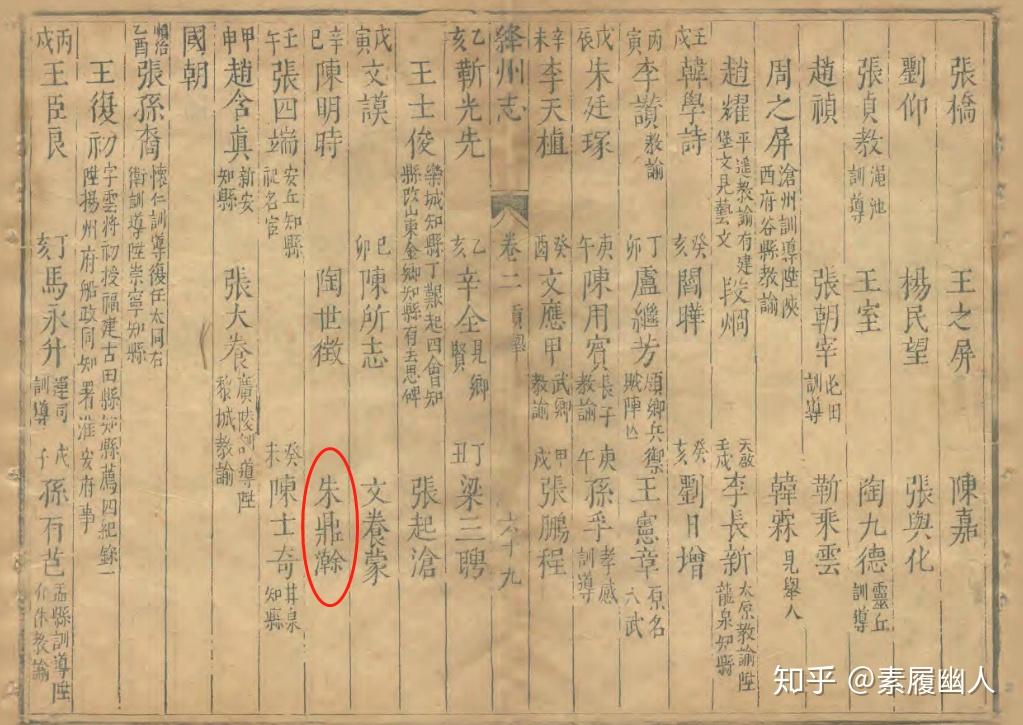 張橋 王之屏 陳嘉
劉仰 楊民望 張與化
張貞教 澠池訓導 王室 陶九德 靈丘訓導
趙禎 張朝宰 訓導 靳乘雲
周之屏 滄州訓導陞陝西府谷縣教諭 韓霖 見舉人
趙耀 平遙教諭有建堡文見藝文 段烱 天啟壬戌 李長新 太原教諭陞龍泉知縣
壬戌 韓學詩 癸亥 閻曄 癸亥 劉日增
丙寅 李讚 教諭 丁卯 盧繼芳 鄉兵禦賊陣亡 王憲章 原名六武
戊辰 朱廷塚 庚午 陳用賓 長子教諭 庚午 孫孚 孝感訓導
辛未 李天植 癸酉 文應甲 武鄉教諭 甲戌 張鵬程
絳州志 卷二 貢舉 六十九
乙亥 靳光先 乙亥 辛全 見鄉賢 丁丑 梁三聘
王士俊 欒城知縣丁艱起四會知縣改山東金鄉知縣有去思碑 張起滄
戊寅 文謨 己卯 陳所志 文養蒙
辛巳 陳明時 陶世徵 朱鼎瀚
壬午 張四端 安丘知縣祀名宦 癸未 陳士奇 井泉知縣
甲申 趙含真 新安知縣 張大養 廣陵訓導陞黎城教諭
國朝
順治乙酉 張孫裔 懷仁訓導復任太同右衛訓導陞崇寧知縣
王復初 字雲將初授福建古田縣知縣薦四紀錄一陞揚州府船政同知署淮安府事
丙戌 王臣良 丁亥 馬永升 運司訓導 戊子 孫有芑 盂縣訓導陞介休教諭
知乎 @素履幽人